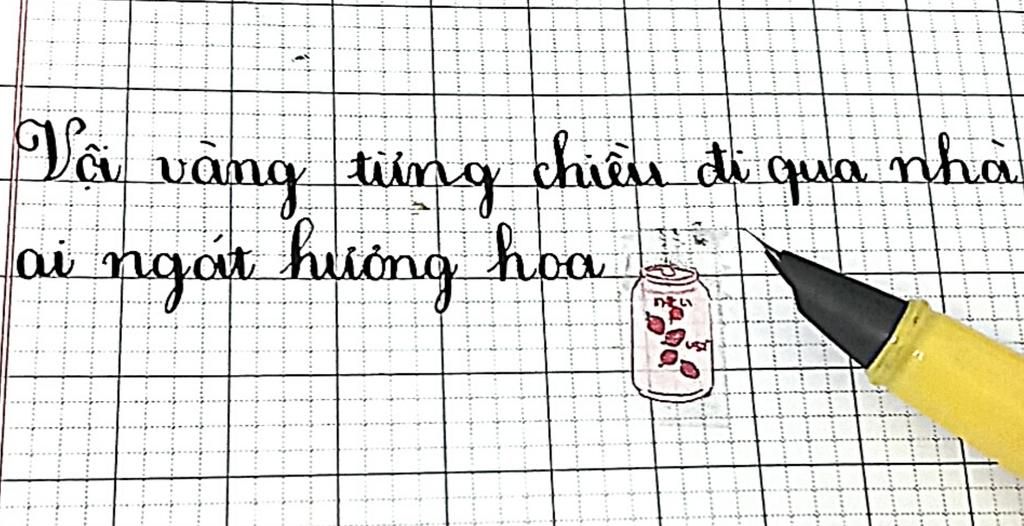 Vội vàng từng chiều đi qua nhà
ai ngát hương hoa